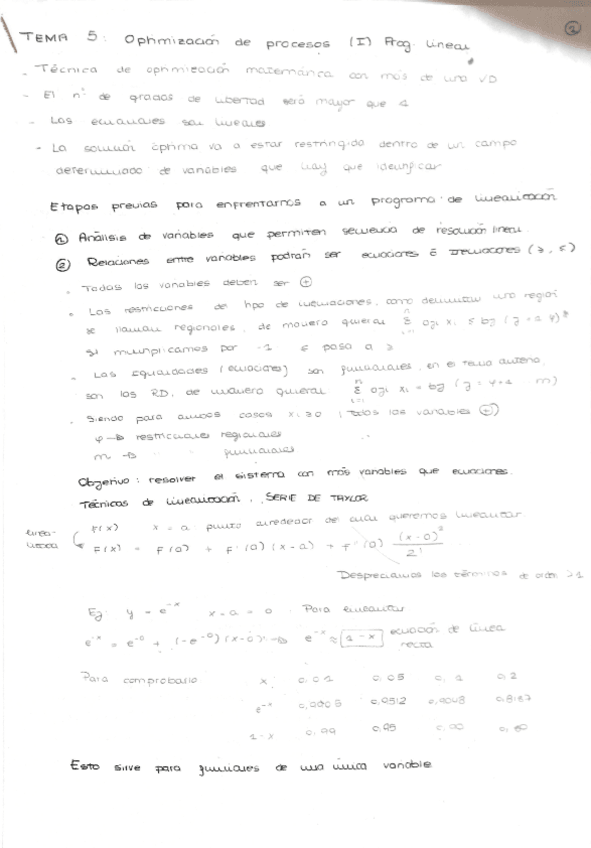 2
TEMA 5: Optimización de procesos (I) Prog. lineal
- Técnica de optimización matemática con más de una VD
- El nº de grados de libertad será mayor que 1
- Las ecuaciones son lineales
- La solución óptima va a estar restringido dentro de un campo
determinado de variables que hay que identificar
Etapas previas para enfrentarnos a un programa de linealización
① Análisis de variables que permiten secuencia de resolución lineal
② Relaciones entre variables podrán ser ecuaciones ó inecuaciones (≥, ≤)
- Todas las variables deben ser ⊕
- Las restricciones de tipo de inecuaciones, como delimitan una región
se llaman regionales, de manera general
Si multiplicamos por -1 ≤ pasa a ≥
- Las igualdades (ecuaciones) son funcionales, en el tema anterior
son las RD, de manera general
- Siendo para ambos casos xi ≥ 0 (Todas las variables ⊕)
φ → restricciones regionales
m → funcionales
Objetivo: resolver el sistema con más variables que ecuaciones.
Técnicas de linealización. SERIE DE TAYLOR
F(x) x = a punto alrededor de cual queremos linealizar
F(x) = F(a) + F'(a) (x-a) + f''(a) (x-a)² / 2!
Despreciamos los términos de orden >1
Ej: y = e^-x x=a=0 Para linealizar
e^-x = e^-0 + (-e^-0)(x-0) → e^-x ≈ 1-x ecuación de línea
recta
Para comprobarlo x 0,01 0,05 0,1 0,2
e^-x 0,9048 0,8187
1-x 0,99 0,95 0,90 0,80
Esto sirve para funciones de una única variable